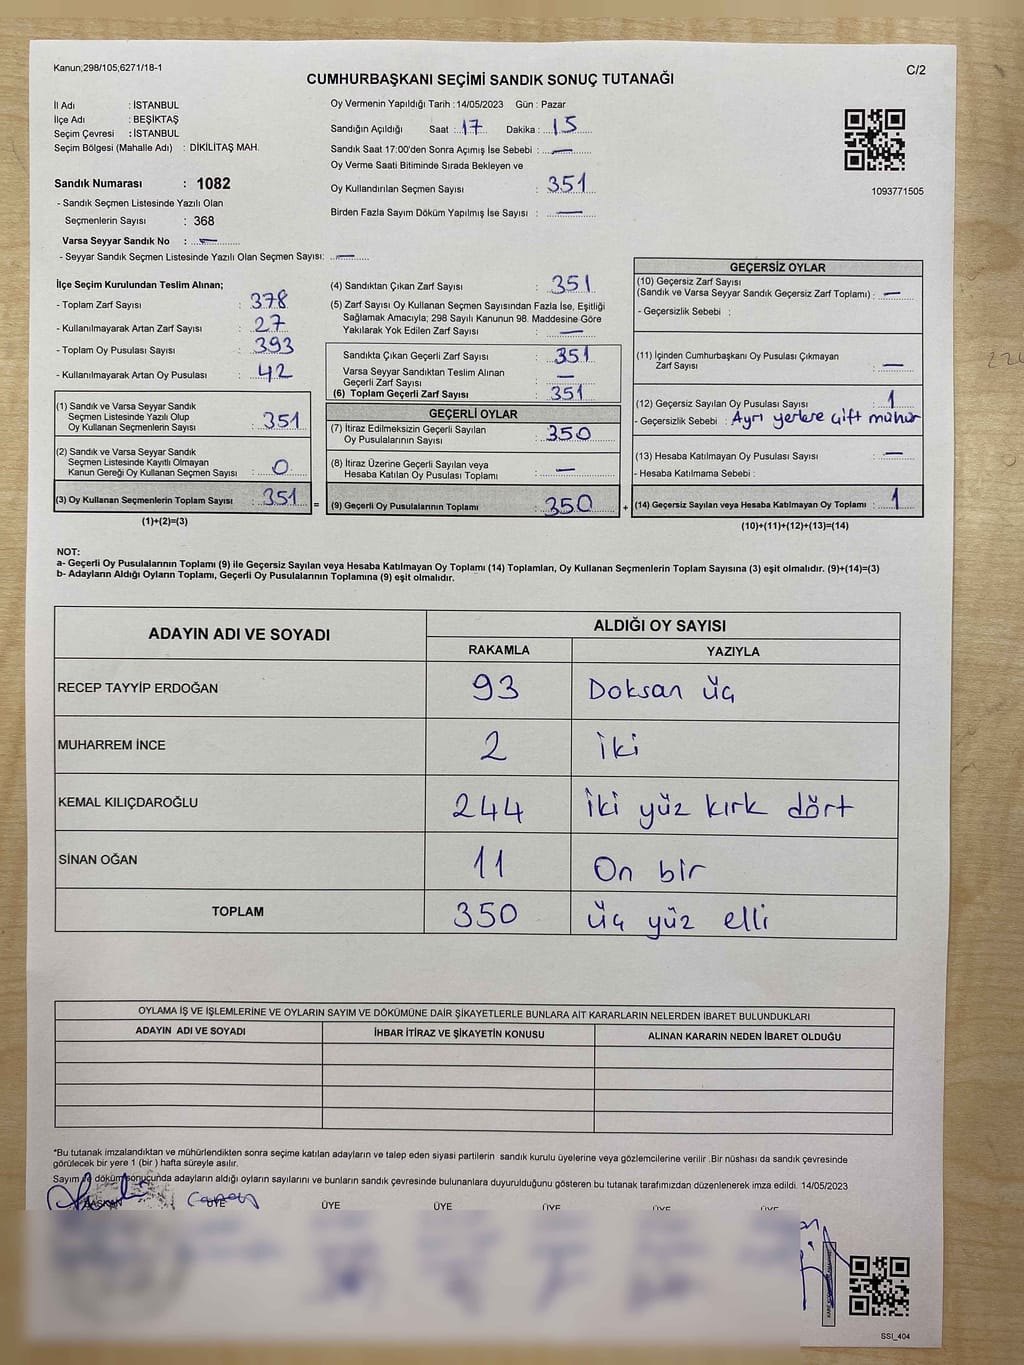 Kanun;298/105,6271/18-1
C/2
CUMHURBAŞKANI SEÇİMİ SANDIK SONUÇ TUTANAĞI
İl Adı : İSTANBUL
İlçe Adı : BEŞİKTAŞ
Seçim Çevresi : İSTANBUL
Seçim Bölgesi (Mahalle Adı) : DİKİLİTAŞ MAH.
Sandık Numarası : 1082
- Sandık Seçmen Listesinde Yazılı Olan
Seçmenlerin Sayısı : 368
Varsa Seyyar Sandık No : —
- Seyyar Sandık Seçmen Listesinde Yazılı Olan Seçmen Sayısı: —
Oy Vermenin Yapıldığı Tarih :14/05/2023 Gün : Pazar
Sandığın Açıldığı Saat : 17 Dakika : 15
Sandık Saat 17:00'den Sonra Açımış İse Sebebi : —
Oy Verme Saati Bitiminde Sırada Bekleyen ve
Oy Kullandırılan Seçmen Sayısı : 351
Birden Fazla Sayım Döküm Yapılmış İse Sayısı : —
1093771505
İlçe Seçim Kurulundan Teslim Alınan;
- Toplam Zarf Sayısı : 378
- Kullanılmayarak Artan Zarf Sayısı : 27
- Toplam Oy Pusulası Sayısı : 393
- Kullanılmayarak Artan Oy Pusulası : 42
(1) Sandık ve Varsa Seyyar Sandık
Seçmen Listesinde Yazılı Olup
Oy Kullanan Seçmenlerin Sayısı : 351
(2) Sandık ve Varsa Seyyar Sandık
Seçmen Listesinde Kayıtlı Olmayan
Kanun Gereği Oy Kullanan Seçmen Sayısı : 0
(3) Oy Kullanan Seçmenlerin Toplam Sayısı : 351 =
(1)+(2)=(3)
(4) Sandıktan Çıkan Zarf Sayısı : 351
(5) Zarf Sayısı Oy Kullanan Seçmen Sayısından Fazla İse, Eşitliği
Sağlamak Amacıyla; 298 Sayılı Kanunun 98. Maddesine Göre
Yakılarak Yok Edilen Zarf Sayısı : —
Sandıkta Çıkan Geçerli Zarf Sayısı : 351
Varsa Seyyar Sandıktan Teslim Alınan
Geçerli Zarf Sayısı : —
(6) Toplam Geçerli Zarf Sayısı : 351
GEÇERLİ OYLAR
(7) İtiraz Edilmeksizin Geçerli Sayılan
Oy Pusulalarının Sayısı : 350
(8) İtiraz Üzerine Geçerli Sayılan veya
Hesaba Katılan Oy Pusulası Toplamı : —
(9) Geçerli Oy Pusulalarının Toplamı : 350 +
GEÇERSİZ OYLAR
(10) Geçersiz Zarf Sayısı
(Sandık ve Varsa Seyyar Sandık Geçersiz Zarf Toplamı) : —
- Geçersizlik Sebebi :
(11) İçinden Cumhurbaşkanı Oy Pusulası Çıkmayan
Zarf Sayısı : —
(12) Geçersiz Sayılan Oy Pusulası Sayısı : 1
- Geçersizlik Sebebi : Ayrı yerlere çift mühür
(13) Hesaba Katılmayan Oy Pusulası Sayısı : —
- Hesaba Katılmama Sebebi :
(14) Geçersiz Sayılan veya Hesaba Katılmayan Oy Toplamı : 1
(10)+(11)+(12)+(13)=(14)
NOT:
a- Geçerli Oy Pusulalarının Toplamı (9) ile Geçersiz Sayılan veya Hesaba Katılmayan Oy Toplamı (14) Toplamları, Oy Kullanan Seçmenlerin Toplam Sayısına (3) eşit olmalıdır. (9)+(14)=(3)
b- Adayların Aldığı Oyların Toplamı, Geçerli Oy Pusulalarının Toplamına (9) eşit olmalıdır.
ADAYIN ADI VE SOYADI
ALDIĞI OY SAYISI
RAKAMLA YAZIYLA
RECEP TAYYİP ERDOĞAN 93 Doksan üç
MUHARREM İNCE 2 iki
KEMAL KILIÇDAROĞLU 244 iki yüz kırk dört
SİNAN OĞAN 11 On bir
TOPLAM 350 üç yüz elli
OYLAMA İŞ VE İŞLEMLERİNE VE OYLARIN SAYIM VE DÖKÜMÜNE DAİR ŞİKAYETLERLE BUNLARA AİT KARARLARIN NELERDEN İBARET BULUNDUKLARI
ADAYIN ADI VE SOYADI İHBAR İTİRAZ VE ŞİKAYETİN KONUSU ALINAN KARARIN NEDEN İBARET OLDUĞU
*Bu tutanak imzalandıktan ve mühürlendikten sonra seçime katılan adayların ve talep eden siyasi partilerin sandık kurulu üyelerine veya gözlemcilerine verilir .Bir nüshası da sandık çevresinde
görülecek bir yere 1 (bir ) hafta süreyle asılır.
Sayım ve döküm sonucunda adayların aldığı oyların sayılarını ve bunların sandık çevresinde bulunanlara duyurulduğunu gösteren bu tutanak tarafımızdan düzenlenerek imza edildi. 14/05/2023
BAŞKAN ÜYE ÜYE ÜYE ÜYE ÜYE ÜYE
SSI_404